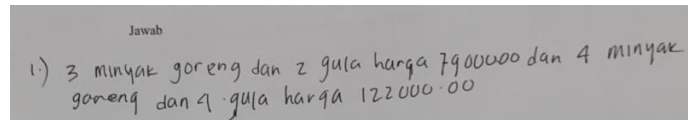 Jawab
1.) 3 minyak goreng dan 2 gula harga 7900000 dan 4 minyak
goreng dan 4 gula harga 122000.00